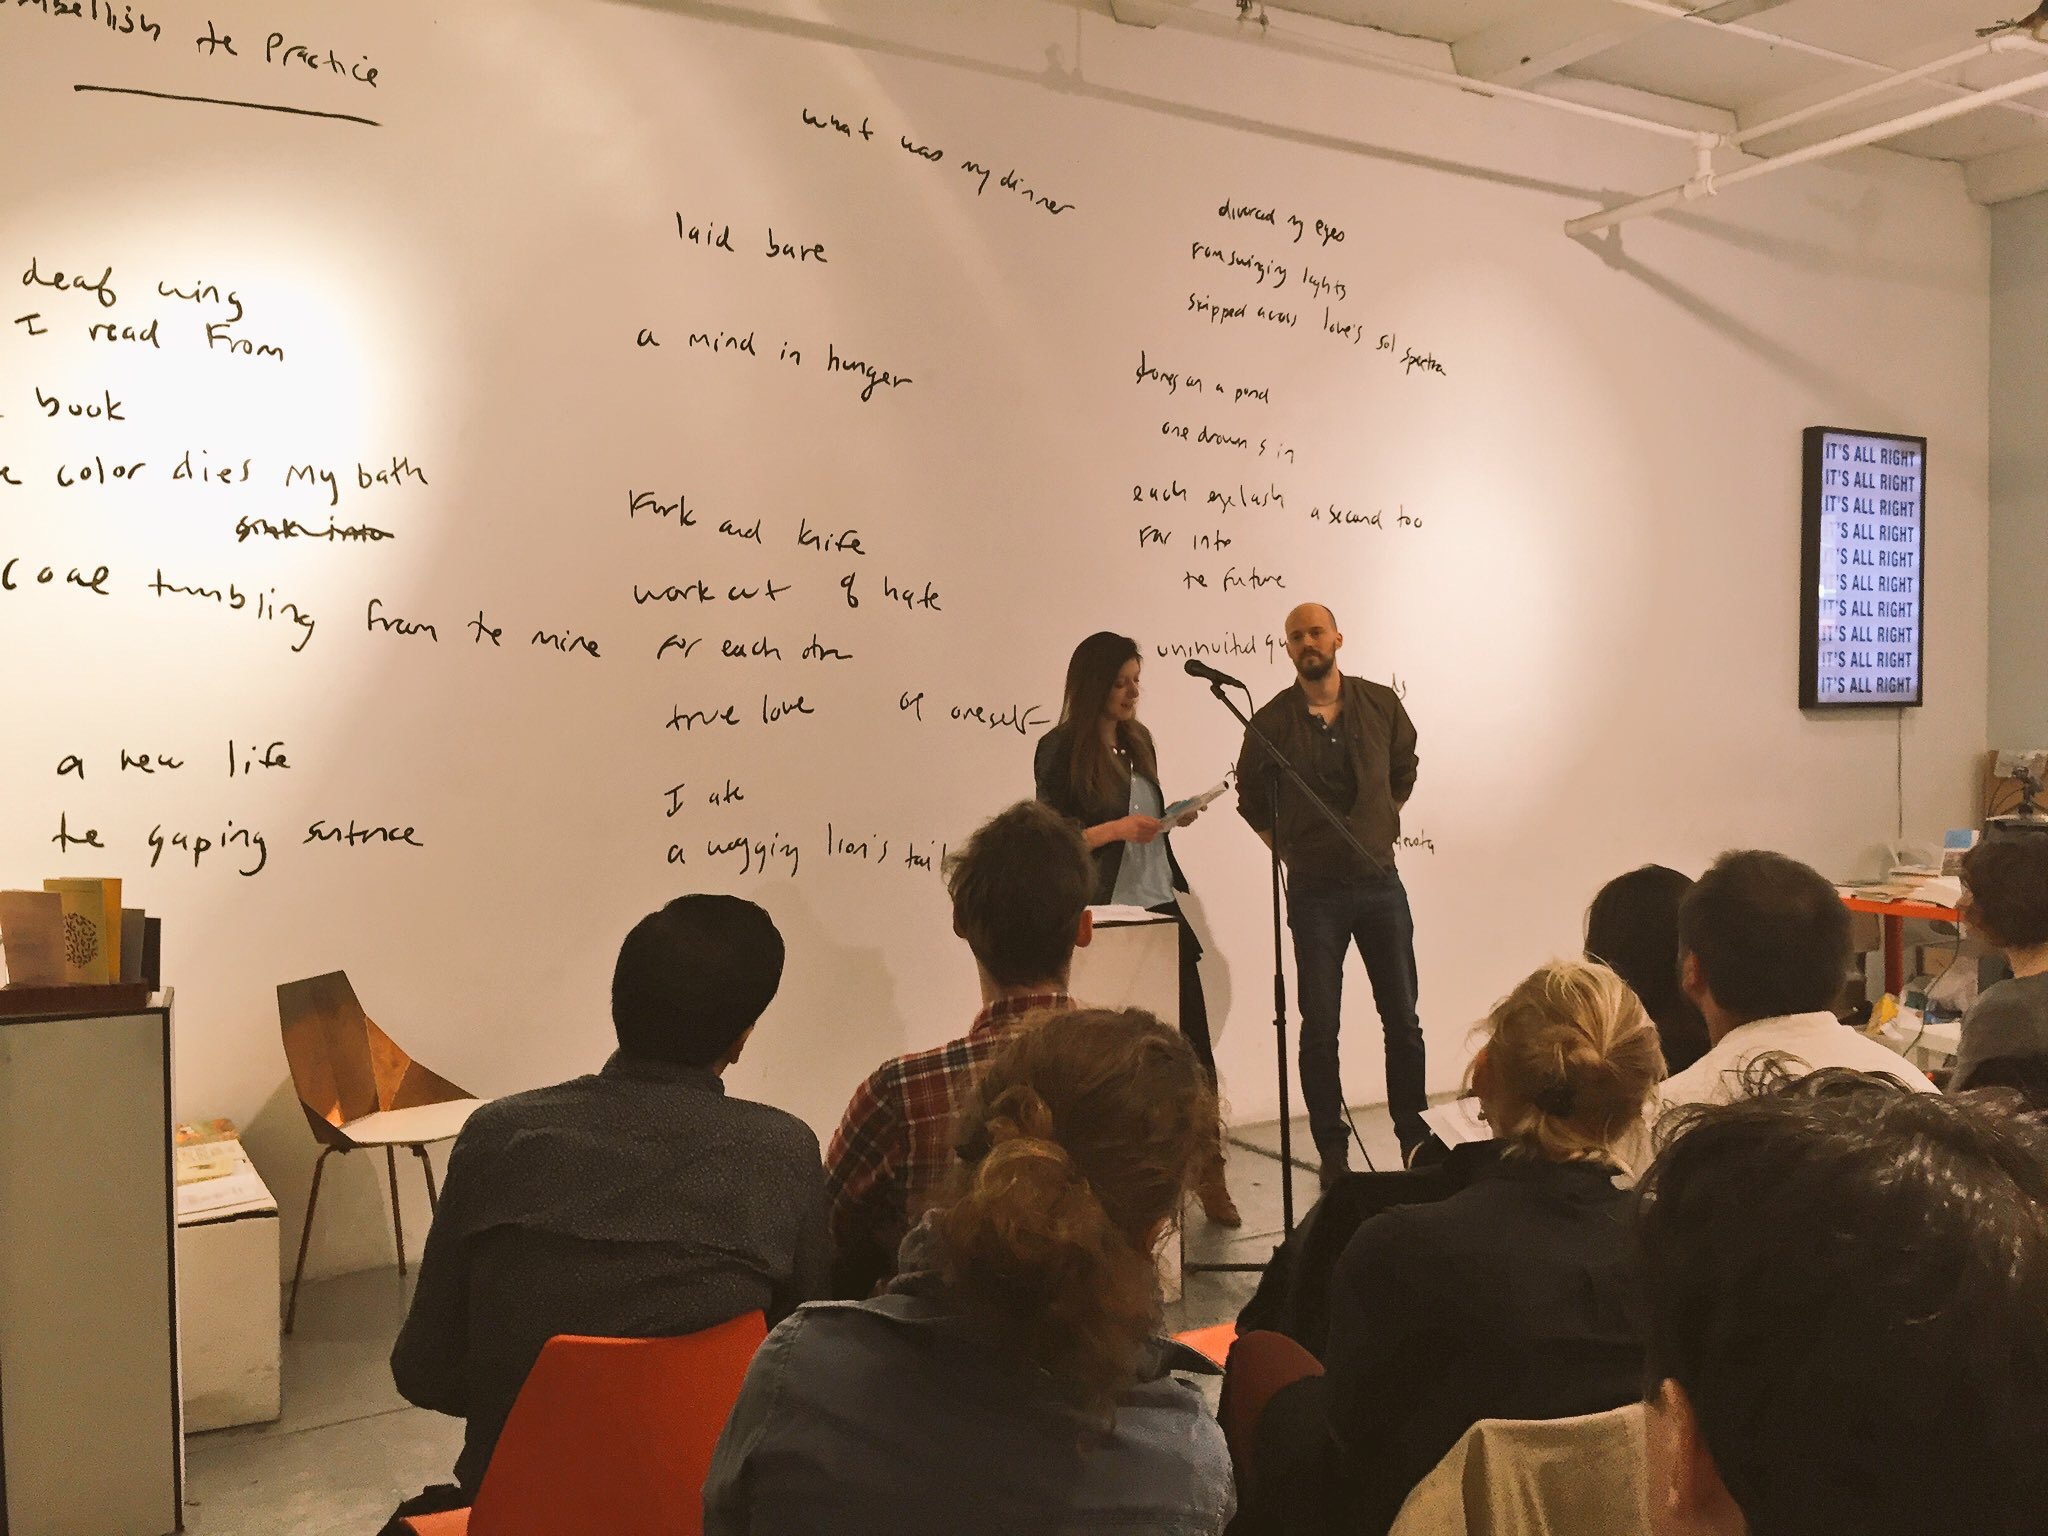 the Practice
deaf wing
I read From
book
color dies My bath
sink into
coal tumbling from the mine
a new life
the gaping sentence
what was my dinner
laid bare
a mind in hunger
Fork and knife
work out of hate
for each other
true love of oneself
I ate
a wagging lion's tail
divorced my eyes
From swinging lights
skipped across love's sol spectra
stones on a pond
one drowns in
each eyelash a second too
Far into
the future
uninvited
IT'S ALL RIGHT
IT'S ALL RIGHT
IT'S ALL RIGHT
IT'S ALL RIGHT
IT'S ALL RIGHT
IT'S ALL RIGHT
IT'S ALL RIGHT
IT'S ALL RIGHT
IT'S ALL RIGHT
IT'S ALL RIGHT